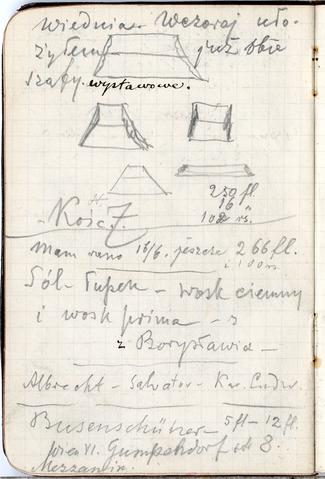 Wiednia. Wczoraj uło-
żyłem już obie
szafy wystawowe.
250 fl.
16 "
102 rs.
Kość
Mam rano 16/6. jeszcze 266 fl.
i 100 rs.
Sól - Łupek - wosk ciemny
i wosk prima - s
z Borysławia -
Albrecht - Salvator - Kar. Ludw.
Busenschützer 5 fl - 12 fl.
Wien VI. Gumpendorf 8.
Mezzanin.